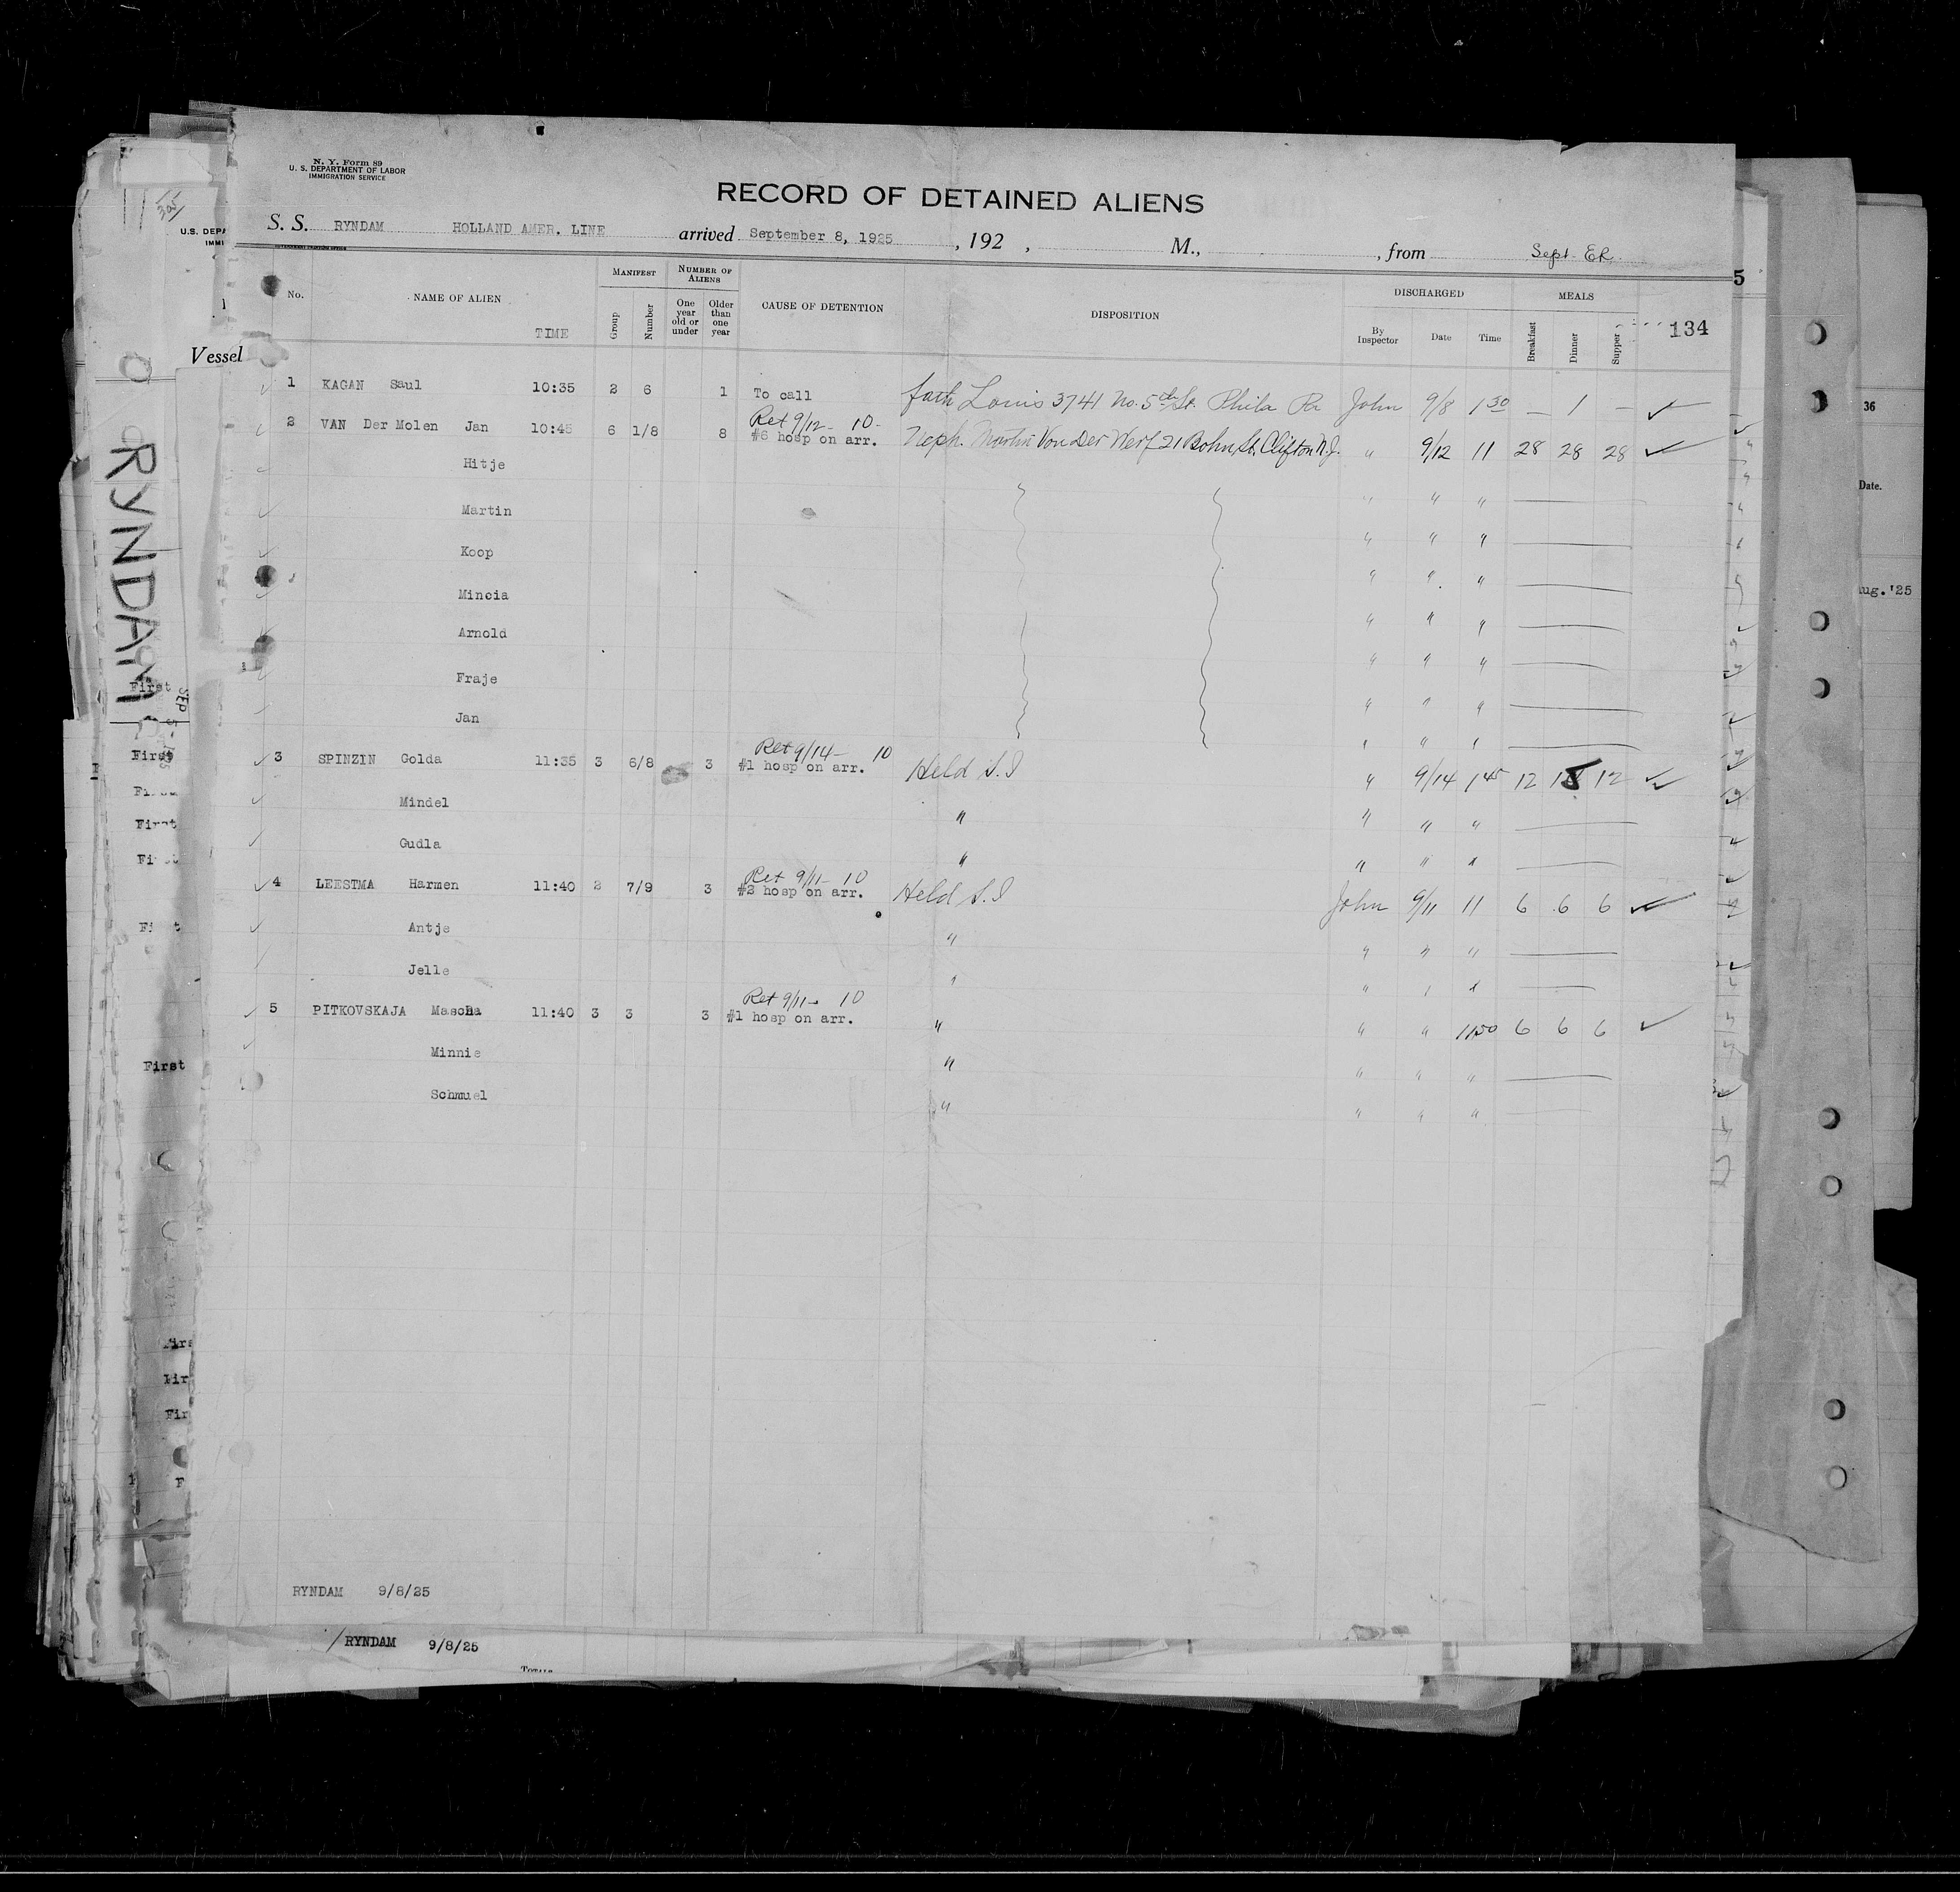 N. Y. Form 89
U. S. DEPARTMENT OF LABOR
IMMIGRATION SERVICE
RECORD OF DETAINED ALIENS
S. S. RYNDAM HOLLAND AMER. LINE arrived September 8, 1925, 192 , M., , from Sept. ER
No. NAME OF ALIEN TIME MANIFEST Group Number NUMBER OF ALIENS One year old or under Older than one year CAUSE OF DETENTION DISPOSITION DISCHARGED By Inspector Date Time MEALS Breakfast Dinner Supper 134
1 KAGAN Saul 10:35 2 6 1 To call fath Louis 3741 No. 5th St. Phila Pa John 9/8 1 30 — 1 —
Ret 9/12- 10-
2 VAN Der Molen Jan 10:45 6 1/8 8 #6 hosp on arr. Neph. Martin Von Der Werf 21 Bohn St. Clifton N.J. " 9/12 11 28 28 28
Hitje " " "
Martin " " "
Koop " " "
Mincia " " "
Arnold " " "
Fraje " " "
Jan " " "
Ret 9/14- 10
3 SPINZIN Golda 11:35 3 6/8 3 #1 hosp on arr. Held S.I " 9/14 1 45 12 15 12
Mindel " " " "
Gudla " " " "
Ret 9/11- 10
4 LEESTMA Harmen 11:40 2 7/9 3 #2 hosp on arr. Held S.I John 9/11 11 6 6 6
Antje " " " "
Jelle " " " "
Ret 9/11- 10
5 PITKOVSKAJA Mascha 11:40 3 3 3 #1 hosp on arr. " " " 1150 6 6 6
Minnie " " " "
Schmuel " " " "
RYNDAM 9/8/25
RYNDAM 9/8/25
TOTALS
305
U.S. DEPA
IMMI
Vessel
RYNDAM
SEP
First
First
First
First
5
36
Date.
Aug. '25